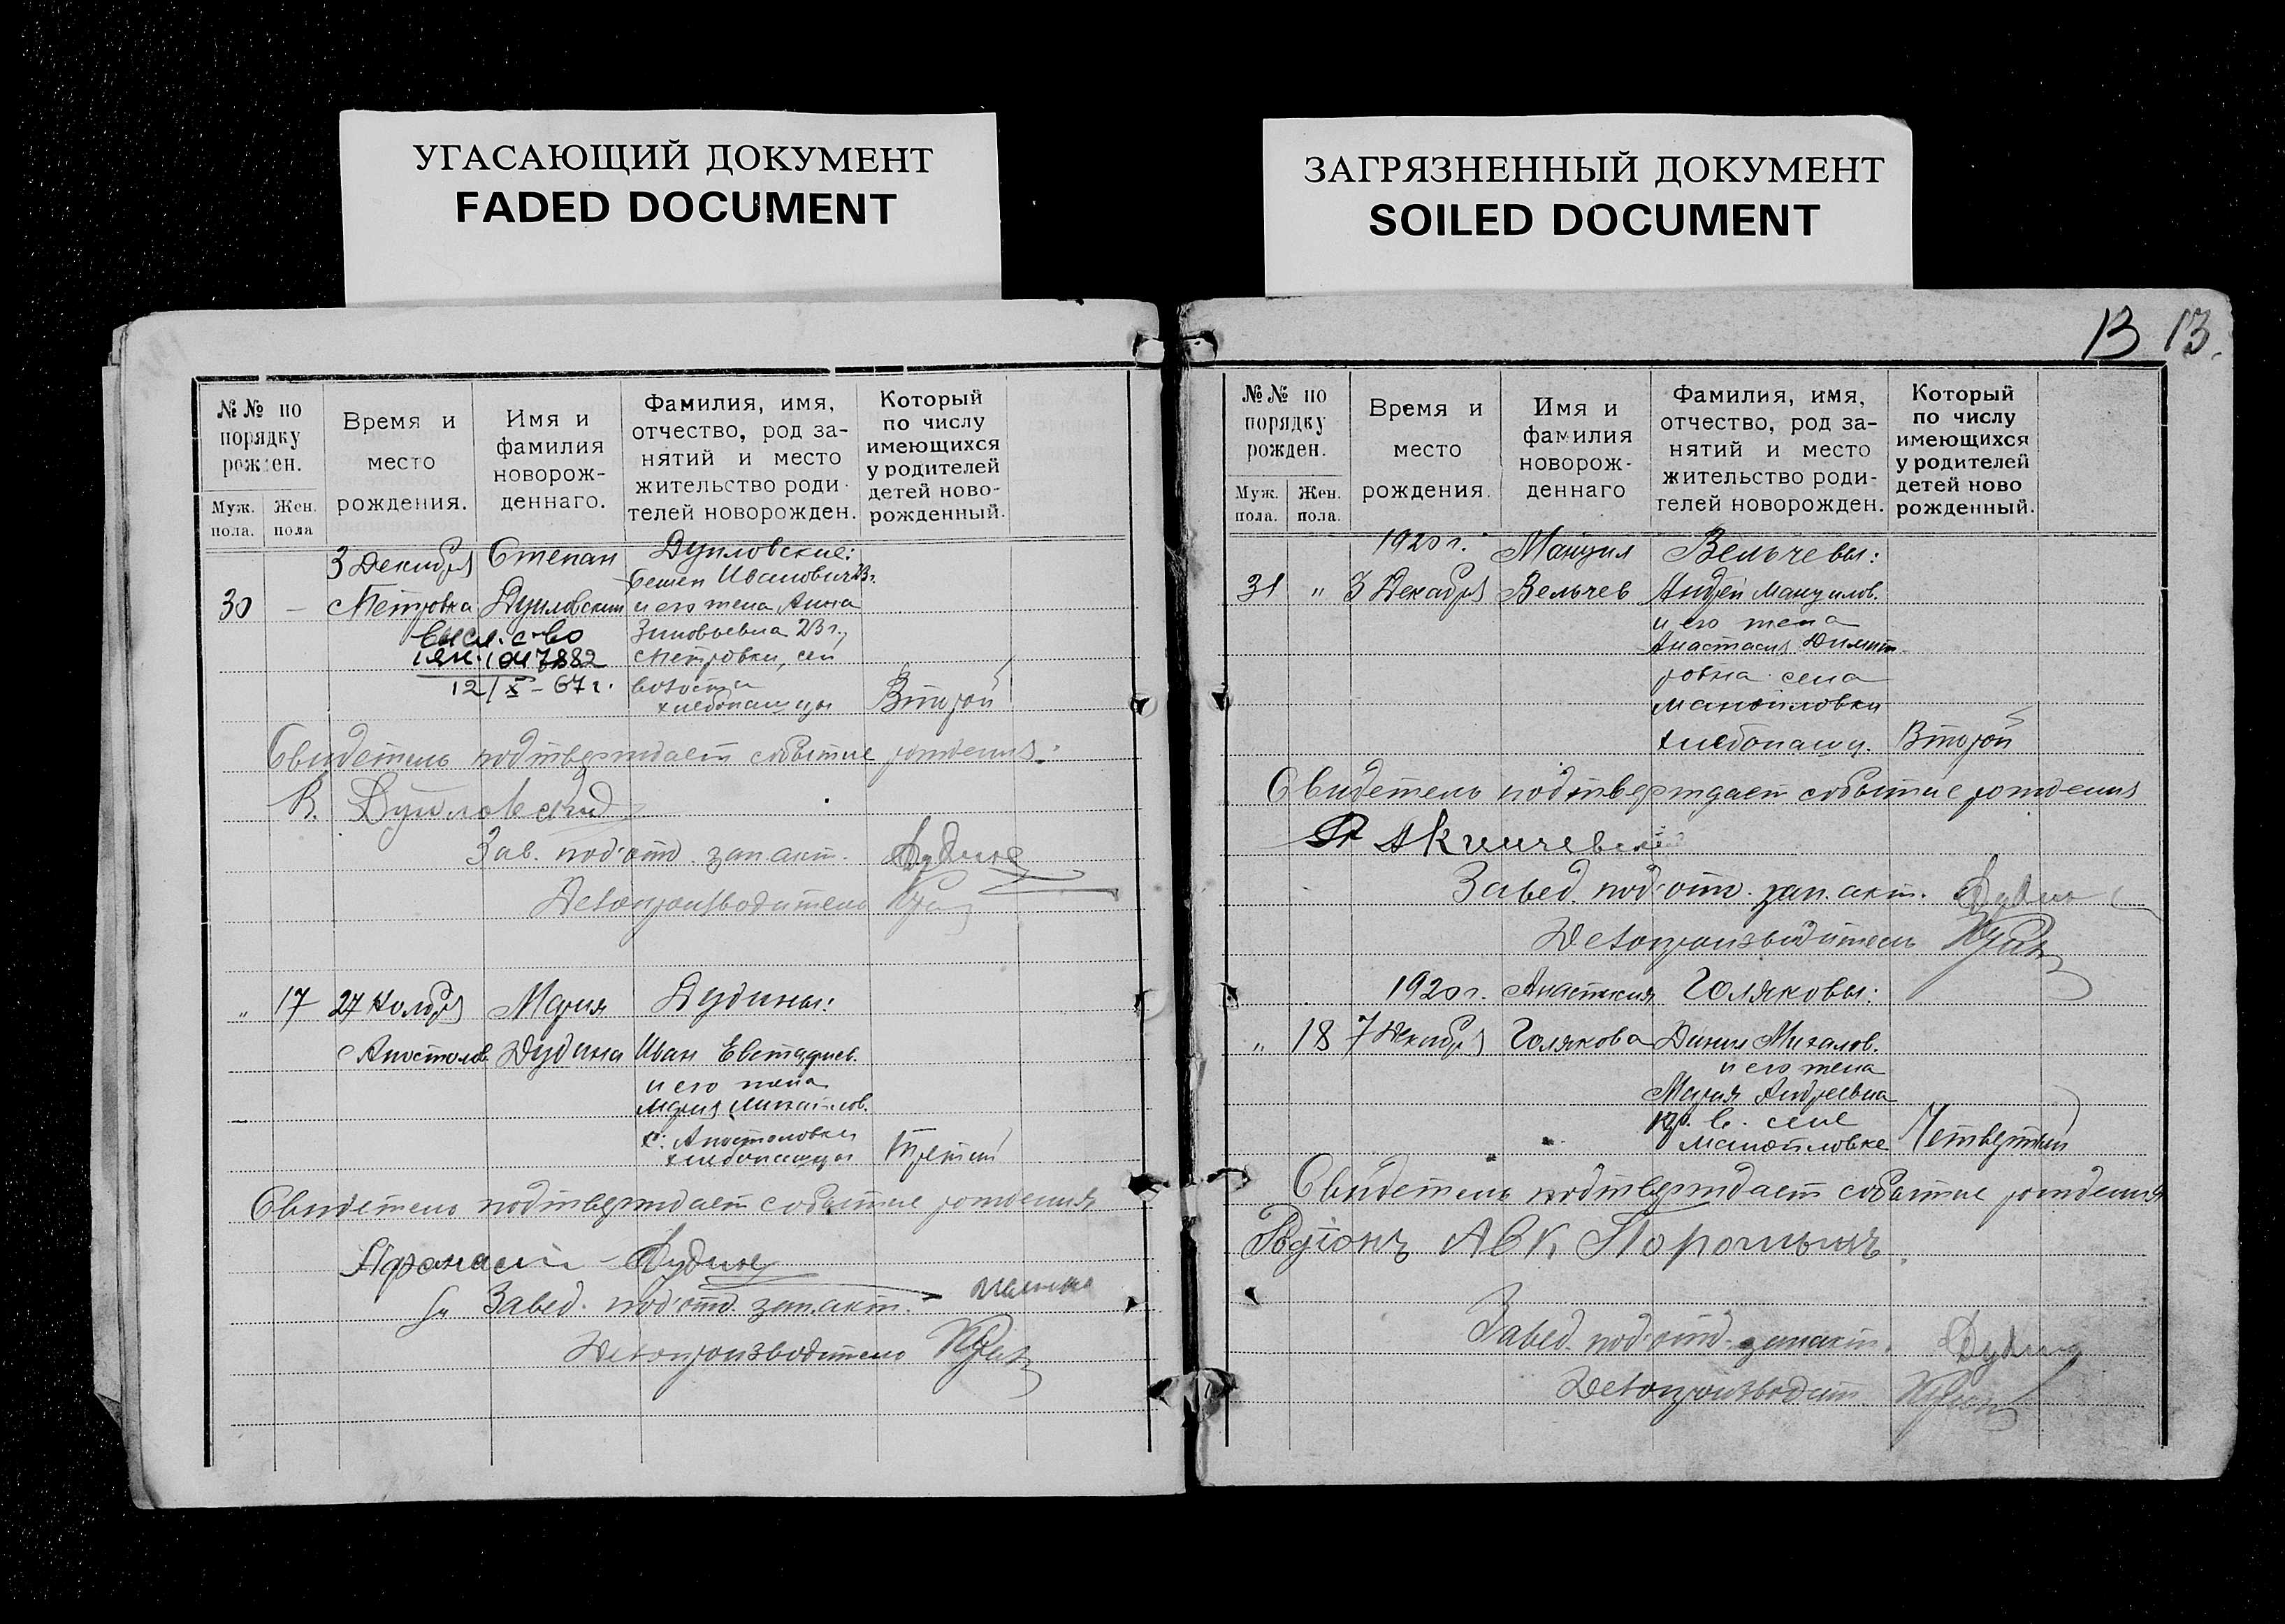 УГАСАЮЩИЙ ДОКУМЕНТ
FADED DOCUMENT
№№ по порядку рожден.
Муж. пола.
Жен. пола
Время и место рождения.
Имя и фамилия новорож-деннаго.
Фамилия, имя, отчество, род за-нятий и место жительство роди-телей новорожден.
Который по числу имеющихся у родителей детей ново-рожденный.
30
—
3 Декабря
Петровка
Степан
Дуиловский
Дуиловские:
Семен Иванович 23 г.
и его жена Анна
Зиновьевна 23 г.,
Петровки, сей
волости
хлебопашцы
Второй
12/X – 67 г.
Свидетель подтверждает событие рождения:
В. Дуиловский
Зав. под'отд. зап. акт. Дудник
Делопроизводитель
"
17
27 Ноября
с Апостолов
Мария
Дудина
Дудины:
Иван Евстафиев.
и его жена
Мария Михайлов.
с. Апостоловки
хлебопашцы
Третий
Свидетель подтверждает событие рождения
Афанасий Дудник
Завед. под'отд. зап. акт.
Делопроизводитель
ЗАГРЯЗНЕННЫЙ ДОКУМЕНТ
SOILED DOCUMENT
13 13.
№№ по порядку рожден.
Муж. пола.
Жен. пола.
Время и место рождения.
Имя и фамилия новорож-деннаго
Фамилия, имя, отчество, род за-нятий и место жительство роди-телей новорожден.
Который по числу имеющихся у родителей детей ново рожденный.
31
"
1920 г.
3 Декабря
Мануил
Вельчев
Вельчевы:
Андрей Мануилов.
и его жена
Анастасия Димит-
ровна села
Манойловки
хлебопашц.
Второй
Свидетель подтверждает событие рождения
Завед. под'отд. зап. акт.
Делопроизводитель
"
18
1920 г.
7 Декабря
Анастасия
Голякова
Голяковы:
Данил Михалов.
и его жена
Мария Андреевна
кр. в. селе
Манойловке
Четвертый
Свидетель подтверждает событие рождения
Завед. под'отд. зап акт.
Делопроизводит.